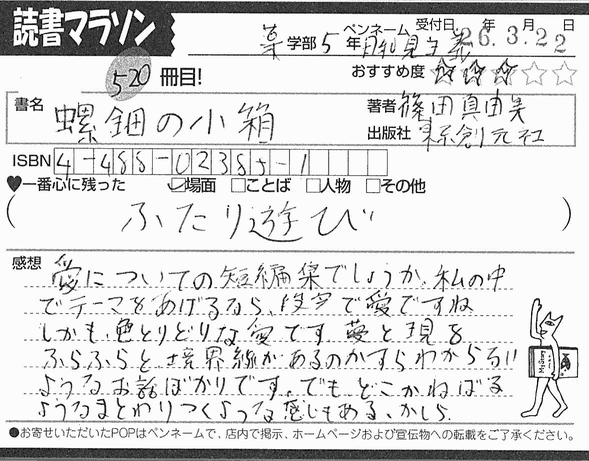 読書マラソン
ペンネーム 受付日 年 月 日
薬学部5年 月和見主義 26.3.22
520冊目!
おすすめ度 ☆☆☆☆☆
書名 螺鈿の小箱
著者 篠田真由美
出版社 東京創元社
ISBN 4-488-02385-1
♥一番心に残った ☑場面 □ことば □人物 □その他
(ふたり遊び)
感想
愛についての短編集でしょうか。私の中
でテーマをあげるなら、で愛ですね
しかも、色とりどりな愛です。夢と現を
ふらふらと、境界線があるのかすらわからない
ようなお話ばかりです。でもどこかねばる
ようなまとわりつくような感じもある、かしら。
●お寄せいただいたPOPはペンネームで、店内で掲示、ホームページおよび宣伝物への転載をご了承ください。